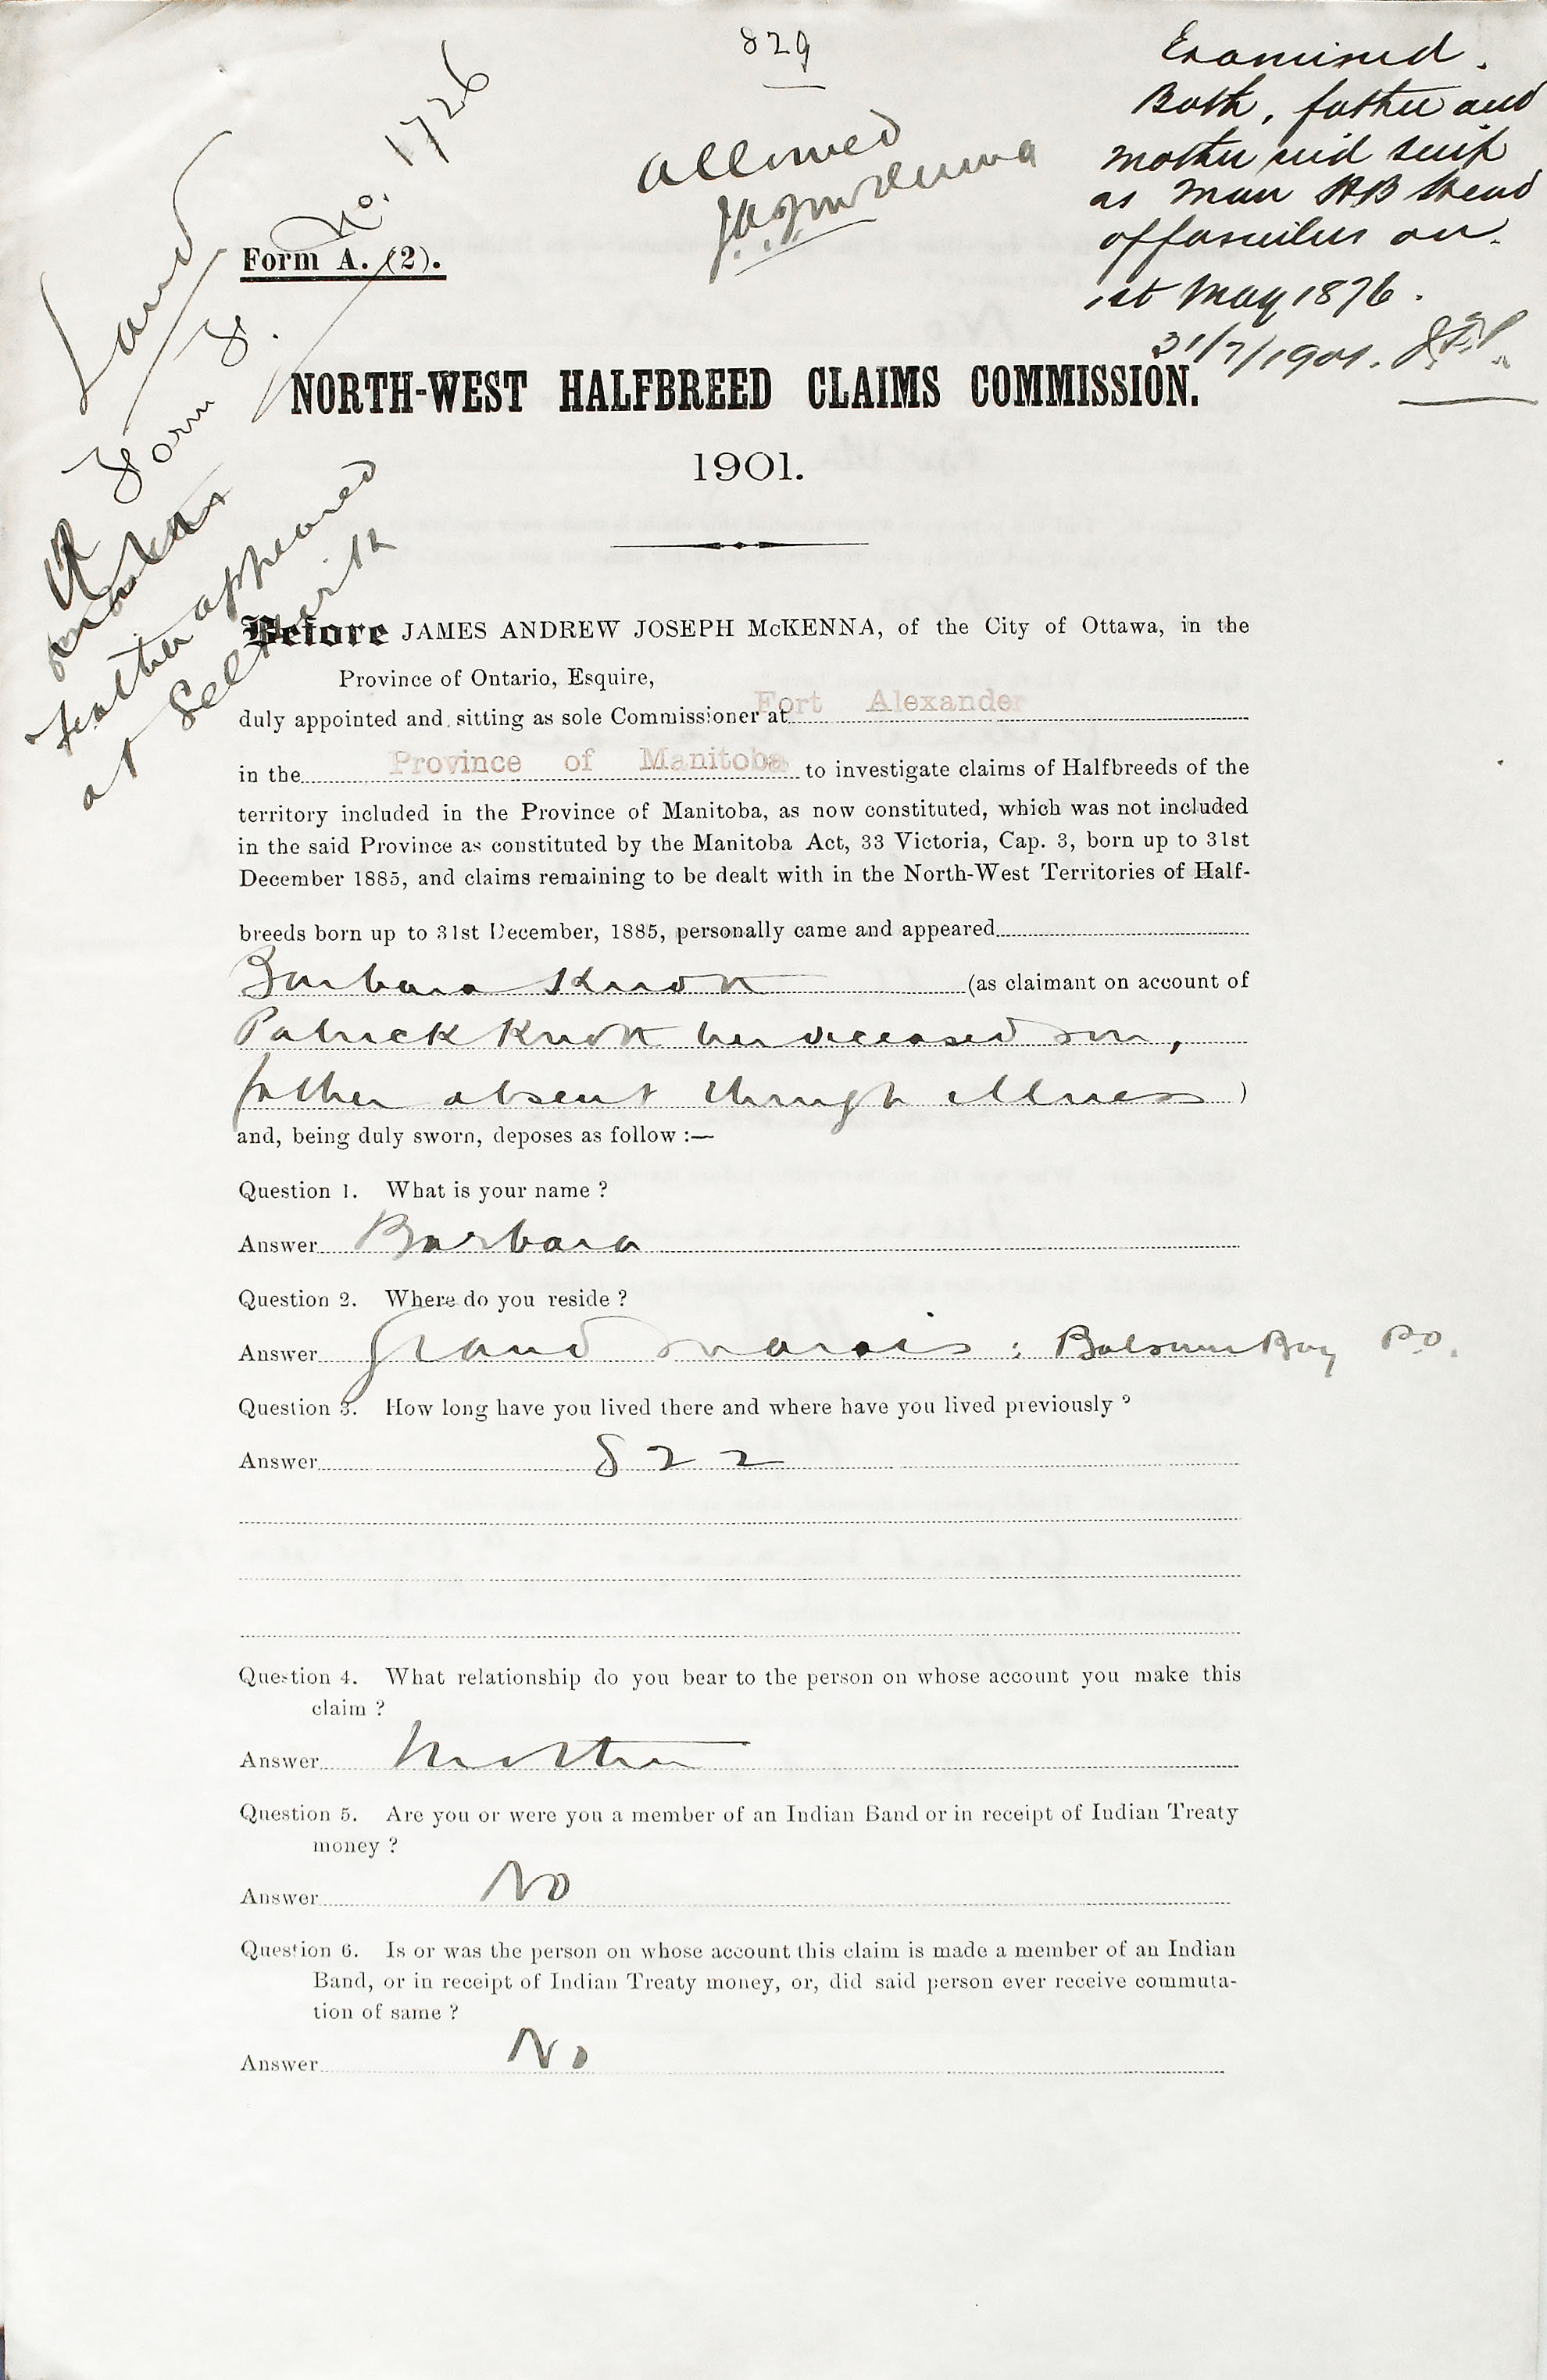 829
Examined.
Both, father and
mother rec'd scrip
as Man HB Heads
of families on
1st May 1876.
31/7/1901.
allowed
Land
Form F. No. 1726
Father appeared
at Selkirk
Form A. (2).
NORTH-WEST HALFBREED CLAIMS COMMISSION.
1901.
Before JAMES ANDREW JOSEPH McKENNA, of the City of Ottawa, in the
Province of Ontario, Esquire,
duly appointed and sitting as sole Commissioner at Fort Alexander
in the Province of Manitoba to investigate claims of Halfbreeds of the
territory included in the Province of Manitoba, as now constituted, which was not included
in the said Province as constituted by the Manitoba Act, 33 Victoria, Cap. 3, born up to 31st
December 1885, and claims remaining to be dealt with in the North-West Territories of Half-
breeds born up to 31st December, 1885, personally came and appeared
Barbara Knott (as claimant on account of
Patrick Knott her deceased son,
father absent through illness)
and, being duly sworn, deposes as follow :—
Question 1. What is your name ?
Answer Barbara
Question 2. Where do you reside ?
Answer Grand Marais : Balsam Bay P.O.
Question 3. How long have you lived there and where have you lived previously ?
Answer 822
Question 4. What relationship do you bear to the person on whose account you make this
claim ?
Answer Mother
Question 5. Are you or were you a member of an Indian Band or in receipt of Indian Treaty
money ?
Answer No
Question 6. Is or was the person on whose account this claim is made a member of an Indian
Band, or in receipt of Indian Treaty money, or, did said person ever receive commuta-
tion of same ?
Answer No